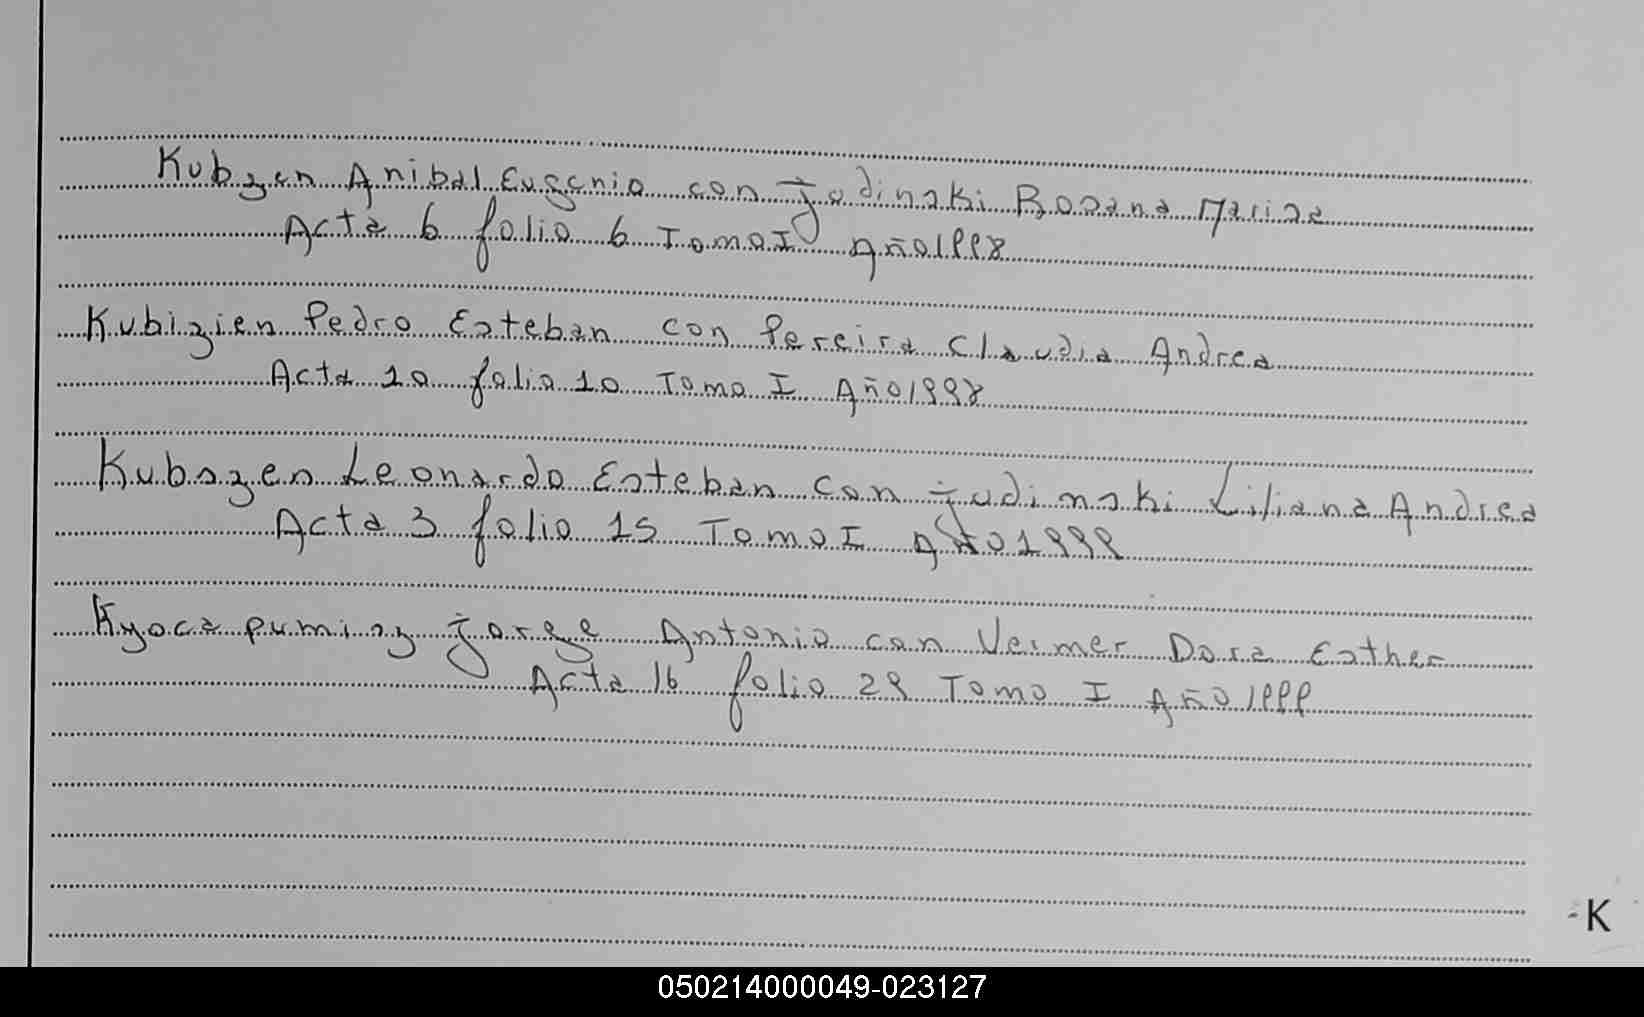 Kubzen Anibal Eugenio con Judinski Rosana Marisa
Acta 6 folio 6 Tomo I Año 1998
Kubizien Pedro Esteban con Pereira Claudia Andrea
Acta 10 folio 10 Tomo I Año 1998
Kubszen Leonardo Esteban con Judinski Liliana Andrea
Acta 3 folio 15 Tomo I Año 1999
Kyocapuminz Jorge Antonio con Vermer Dora Esther
Acta 16 folio 29 Tomo I Año 1999
-K
050214000049-023127